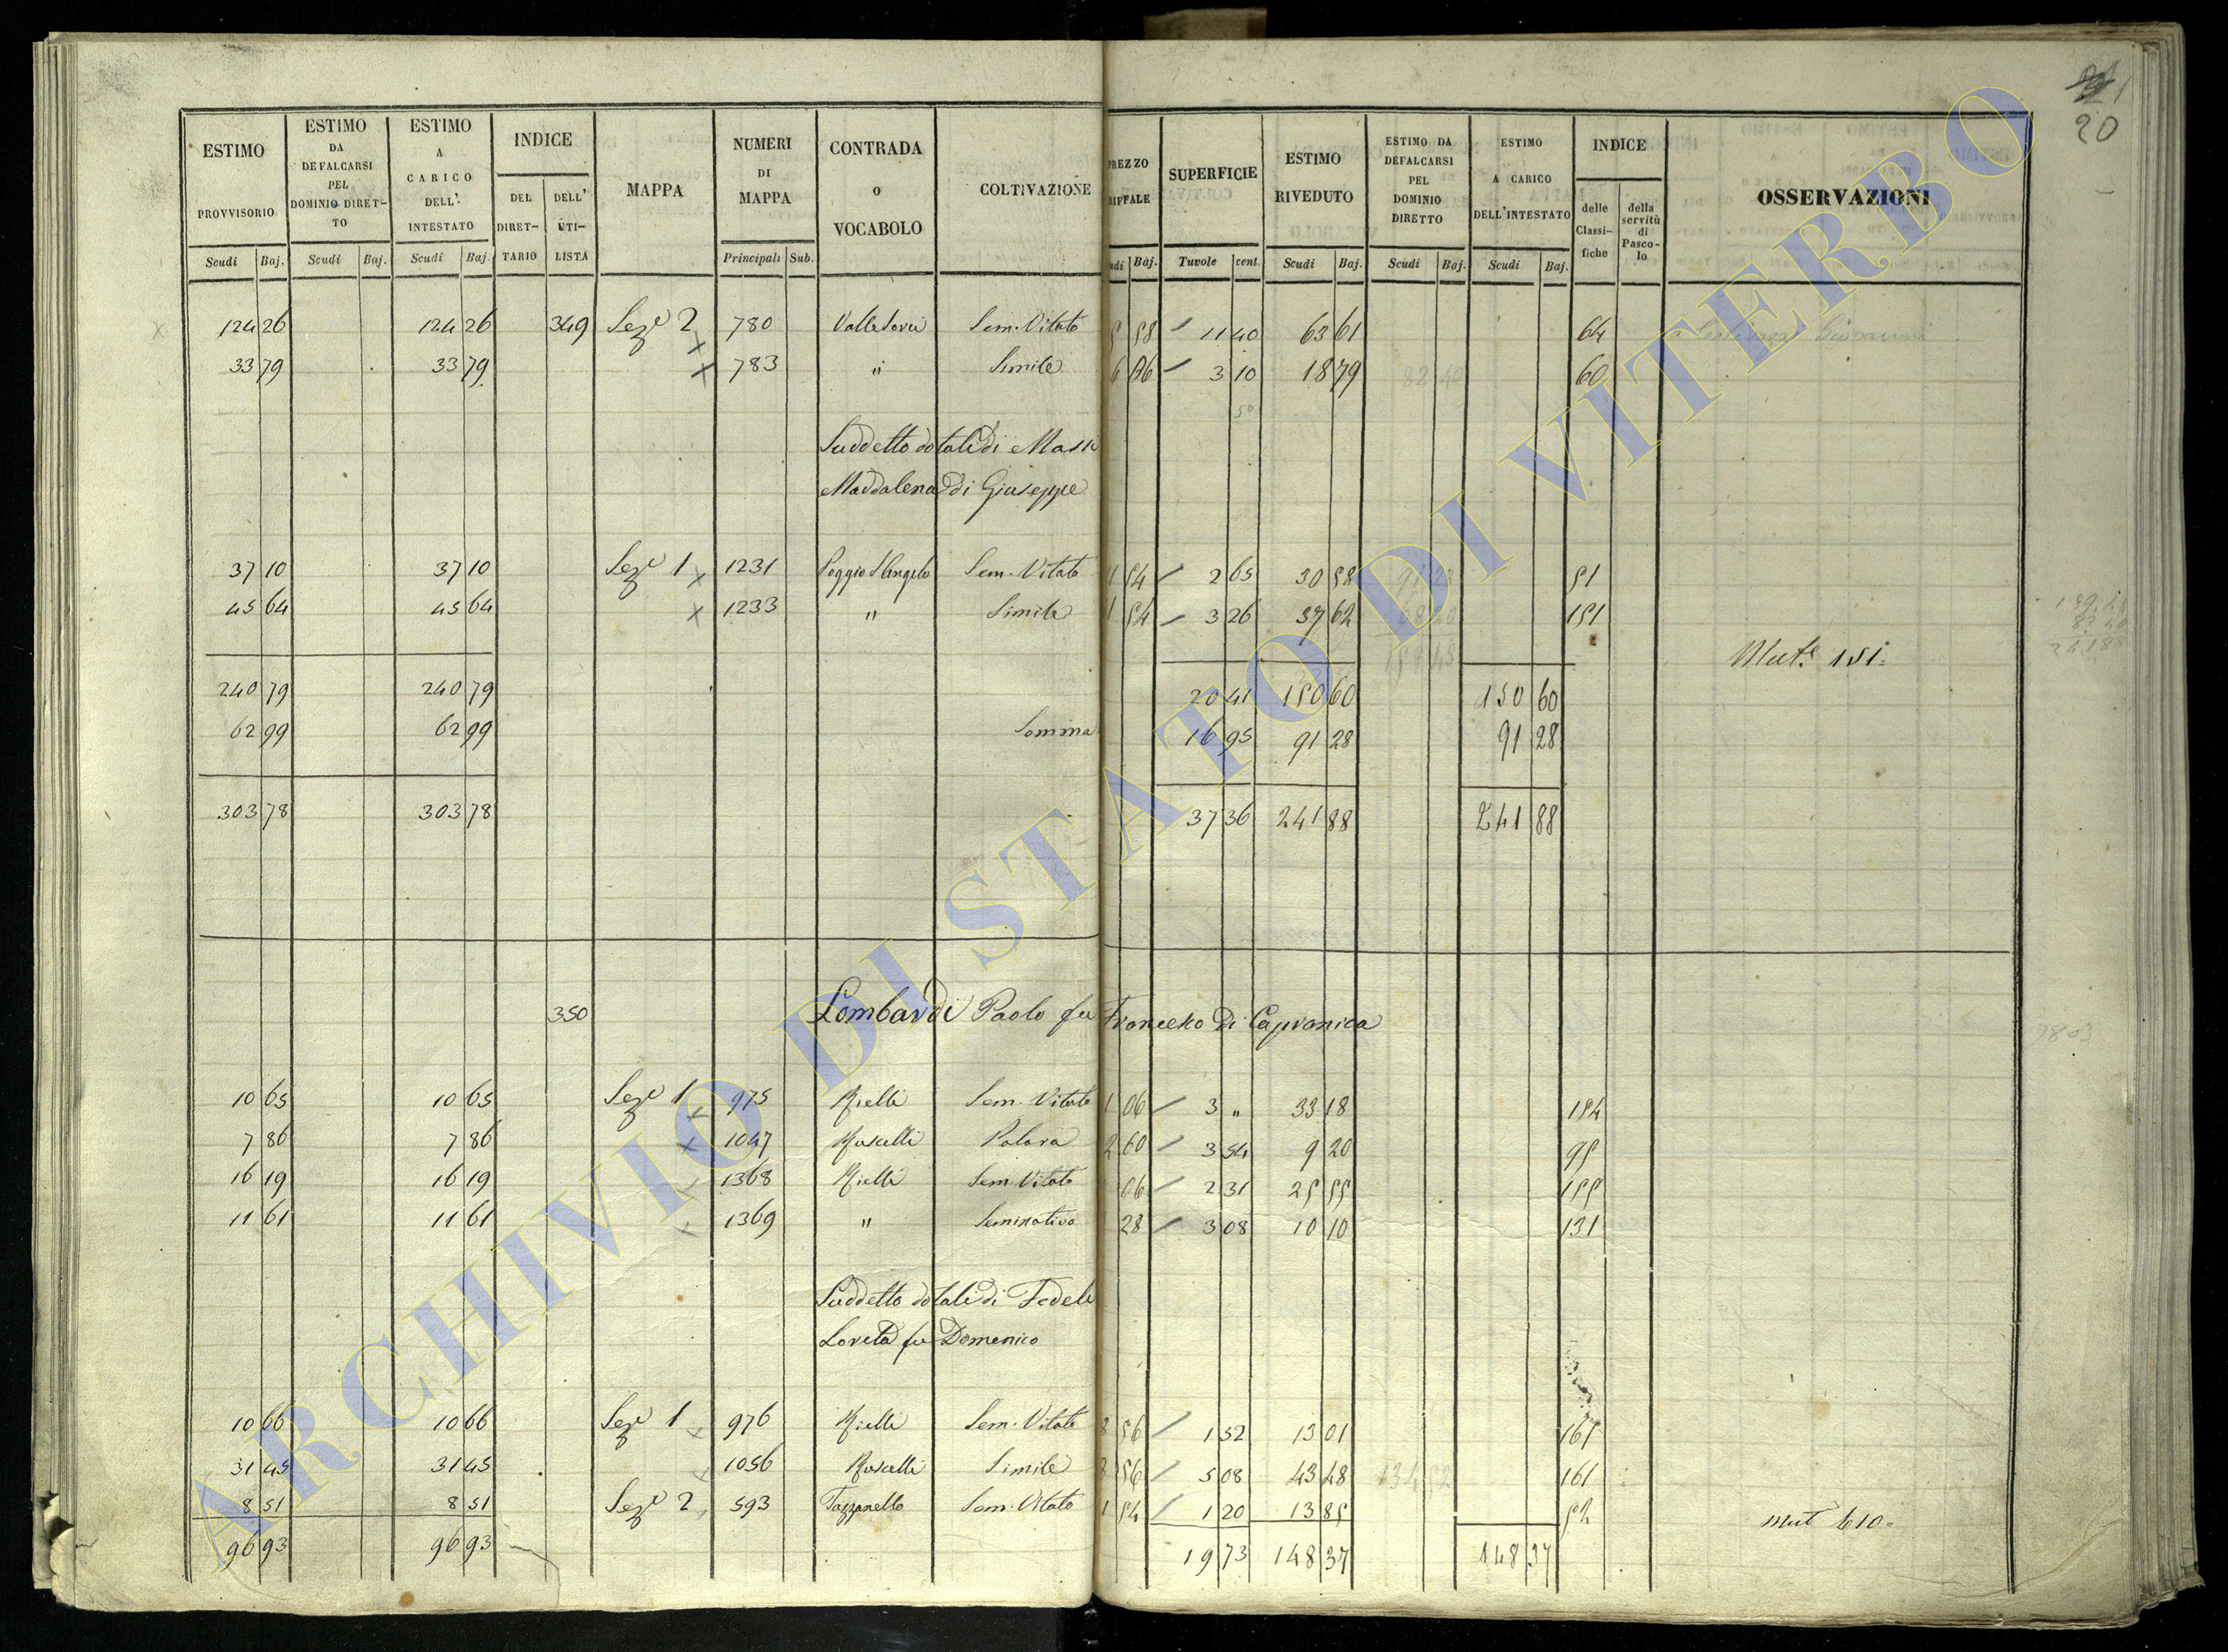 21
20
ESTIMO PROVVISORIO | ESTIMO DA DEFALCARSI PEL DOMINIO DIRETTO | ESTIMO A CARICO DELL' INTESTATO | INDICE DEL DIRETTARIO | DELL' UTILISTA | MAPPA | NUMERI DI MAPPA | CONTRADA O VOCABOLO | COLTIVAZIONE | PREZZO | SUPERFICIE | ESTIMO RIVEDUTO | ESTIMO DA DEFALCARSI PEL DOMINIO DIRETTO | ESTIMO A CARICO DELL'INTESTATO | INDICE delle Classifiche | della servitù di Pascolo | OSSERVAZIONI
Scudi | Baj. | Scudi | Baj. | Scudi | Baj. | Principali | Sub. | Baj. | Tavole | cent. | Scudi | Baj. | Scudi | Baj. | Scudi | Baj.
124 26 | 124 26 | 349 | Sez.e 2 | 780 | Sem. Vitato | 58 | 11 40 | 63 61 | 64
33 79 | 33 79 | 783 | " | Simile | 6 06 | 3 10 | 18 79 | 60
Suddetto dotale di Massi
Maddalena di Giuseppe
37 10 | 37 10 | Sez.e 1 | 1231 | Poggio S. Angelo | Sem. Vitato | 54 | 2 65 | 30 58 | 151
45 64 | 45 64 | 1233 | " | Simile | 1 54 | 3 26 | 37 62 | 151
Mut.e 151.
240 79 | 240 79 | 20 41 | 150 60 | 150 60
62 99 | 62 99 | Somma | 16 95 | 91 28 | 91 28
303 78 | 303 78 | 37 36 | 241 88 | 241 88
350 | Lombardi Paolo fu Francesco Di Capranica
10 65 | 10 65 | Sez.e 1 | 975 | Rielli | Sem. Vitato | 1 06 | 3 " | 33 18 | 154
7 86 | 7 86 | 1047 | Ruscelli | 2 60 | 3 54 | 9 20 | 95
16 19 | 16 19 | 1368 | Rielli | Sem. Vitato | 06 | 2 31 | 25 55 | 155
11 61 | 11 61 | 1369 | " | Seminativo | 28 | 3 08 | 10 10 | 131
Suddetto dotale di Fedeli
Loreta fu Domenico
10 66 | 10 66 | Sez.e 1 | 976 | Rielli | Sem. Vitato | 8 56 | 1 52 | 13 01 | 161
31 45 | 31 45 | 1056 | Ruscelli | Simile | 8 56 | 5 08 | 43 48 | 161
8 51 | 8 51 | Sez.e 2 | 593 | Sem. Vitato | 1 54 | 1 20 | 13 85
mut 610.
96 93 | 96 93 | 19 73 | 148 37 | 148 37
ARCHIVIO DI STATO DI VITERBO